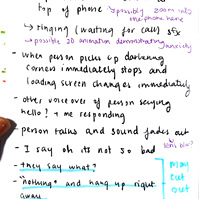 top of phone → possibly zoom into
the phone here
↳ ringing (waiting for call) sfx
↳ possible 2D animation demonstrating anxiety
- when person picks up darkening
corners immediately stops and
loading screen changes immediately
- other voiceover of person saying
hello? + me responding
- person talks and sound fades out
- I say oh its not so bad
- they say what?
- "nothing" and hang up right
away
may
cut
out